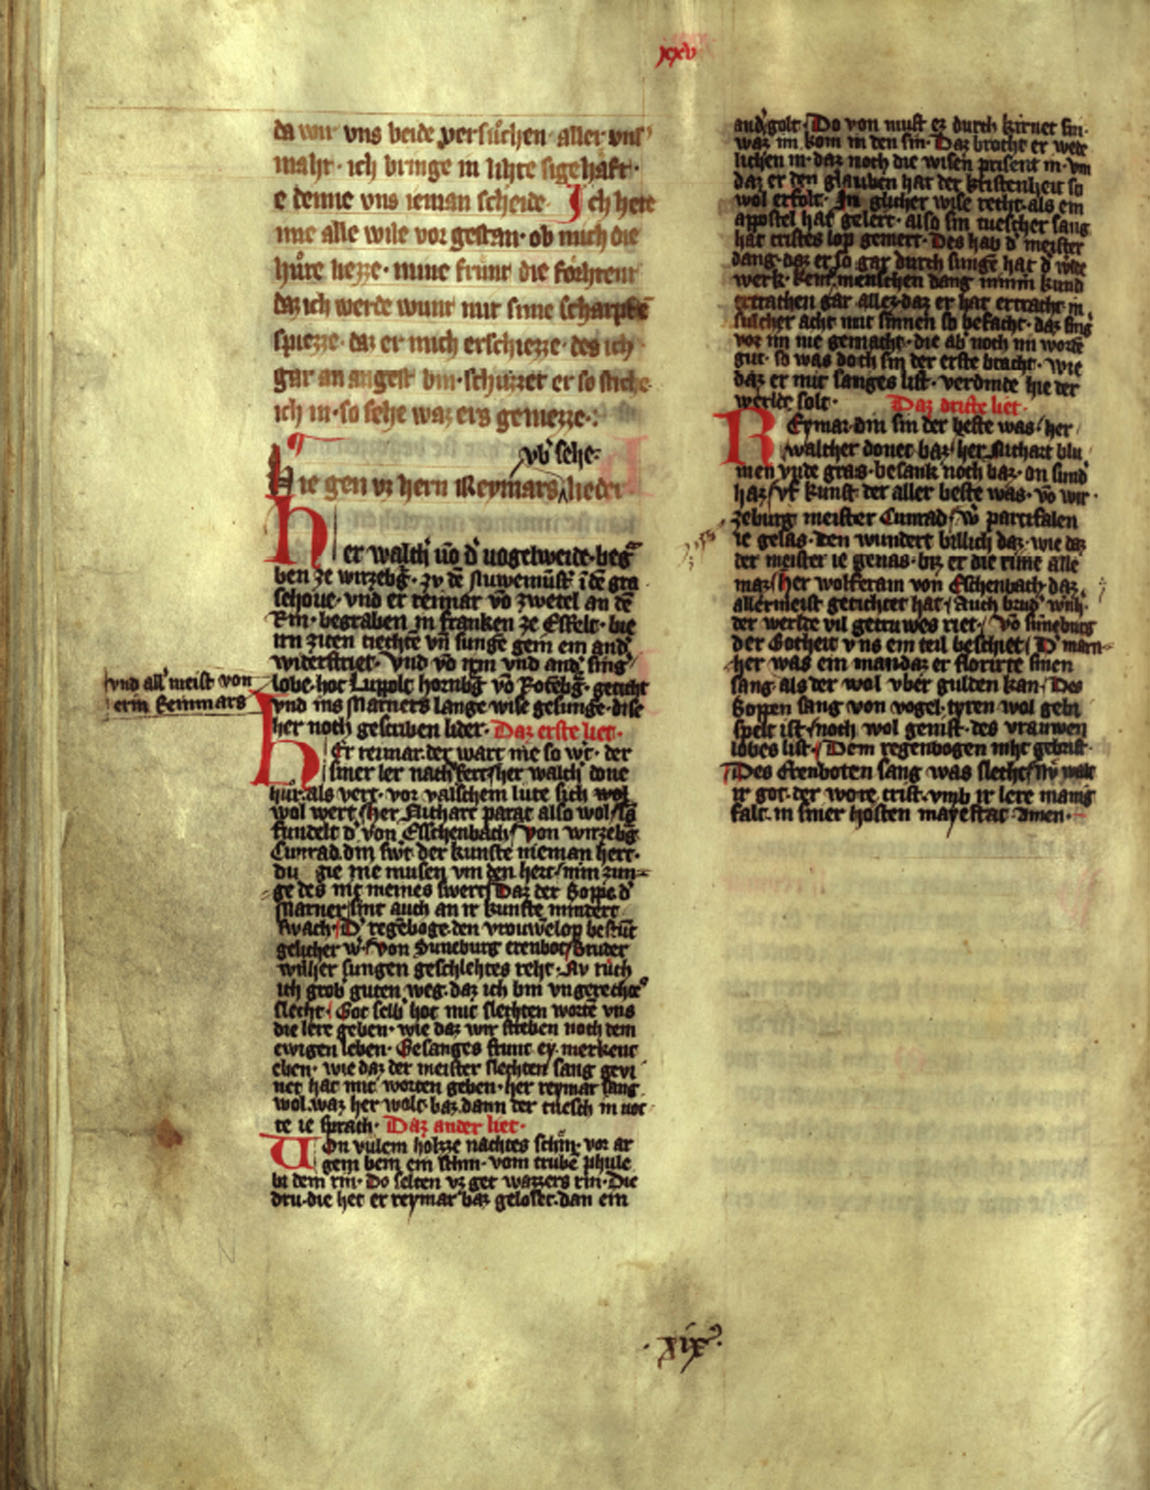 xxv
da wir vns beide versuchen aller vnſ
maht · ich bringe in lihte sigehaft ·
e denne vns ieman scheide · Ich hete
mie alle wile vor gestan · ob mich die
hute hezze · mine frunt die
daz ich werde wunt mit sime scharpfē
spiezze · daz er mich erschiezze · des ich
gar an angest bin · schuzzet er so
ich in · so sehe waz ers geniezze ·
vb sehe ·
Hie gen vz hern Reymars lieder
Her walth' võ d' vogelweide · beg
ben ze wirzebg · zv dē nuwemūst' ī dē gra
schoue · vnd er reimar võ zwetel an dē
Rin · begraben in franken ze Esselt · bie
irn ziten tiechte vn̄ sunge gein ein and'
widerstriet · Vnd võ irm vnd and' sing'
lobe · hot Luppolt hornbg võ Rotēbg · geticht
vnd all' meist von
ern Reinmars
vnd ins Marners lange wise gesunge · dise
her noch gescriben lider · Daz erste liet ·
Er reimar · der wart nie so w't · der
siner ler nach her walth' done
hur · als vert · vor valschem lute sich wol
wol wert her Nithart parat also wol
fundelt d' von Esschenbach von wirzebg
Cunrad · din der kunste nieman hert ·
du gie nie musen vm den hert nim zun
ge des nit meines swert Daz der Boppe d'
Marner sint auch an ir kunste
swach · D' regēboge den vrouwēlop
gelicher von Suneburg erenbot Bruder
wilher sungen geschlehtes reht · Nv
ich grob guten weg · daz ich bin vngerecht
slecht · Got selb' hot mit slechten worte vns
die lere geben · wie daz wir streben noch dem
ewigen leben · Gesanges frunt ey merkent
eben · wie daz der meister slechten sang gevi
net hat mit worten geben · her reymar sang
wol · waz her wolt · baz dann der tuesch in
te ie sprach · Daz ander liet ·
Von vulem holtze nachtes schin · vor ar
gem bein ein schin · vom trubē phule
bi dem rin · Do selten vz get wazzers rin · Die
dru · die het er reymar baz gelost · dan ein
and' golt · Do von must ez durch sin ·
waz im kom in den sin · Daz brocht er wete
lichen in · daz noch die wisen prisent in · vm
daz er den glauben hat der kristenheit so
wol erfolt · In glicher wise recht · als ein
apostel hat gelert · also sin tuescher sang
hat cristes lop gemert · Des hab d' meister
dang · daz er so gar durch sunge hat d'
werk · Kein menschen dang nimm kund
ertrachen gar allez daz er hat ertracht in
sulcher acht mit sinnen so besacht · daz sing'
vor im nie gemacht · die ab' noch im worde
gut · so was doch sin der erste bracht · wie
daz er mit sanges list · verdinde hie der
werlde solt · Daz dritte liet ·
Reymar · din sin der beste was · her
walther donet baz · her Nithart blu
men vnde gras · besank noch baz · on sund'
haz vf kunst der aller beste was · võ wir
zeburg meister Cunrad · partifalen
ie gelas · den wundert billich daz · wie daz
der meister ie genas · biz er die rime alle
maz her wolferam von Eschenbach daz
allermeist getichtet hat Auch brud' wilh'
der werlde vil getruwes riet · võ suneburg
der Gotheit vns ein teil beschiet D' marn
her was ein man · daz er florirte sinen
sang als der wol vber gulden kan · Des
Boppen sang von vogel · tyren wol gebi
spelt ist noch wol genist · des vrauwen
lobes list · Dem regenbogen niht gebrist ·
Des Erenboten sang was slecht
ir got · der wore crist · vmb ir lere manig
falt · in siner hosten mayestat · Amen ·
· xix ·